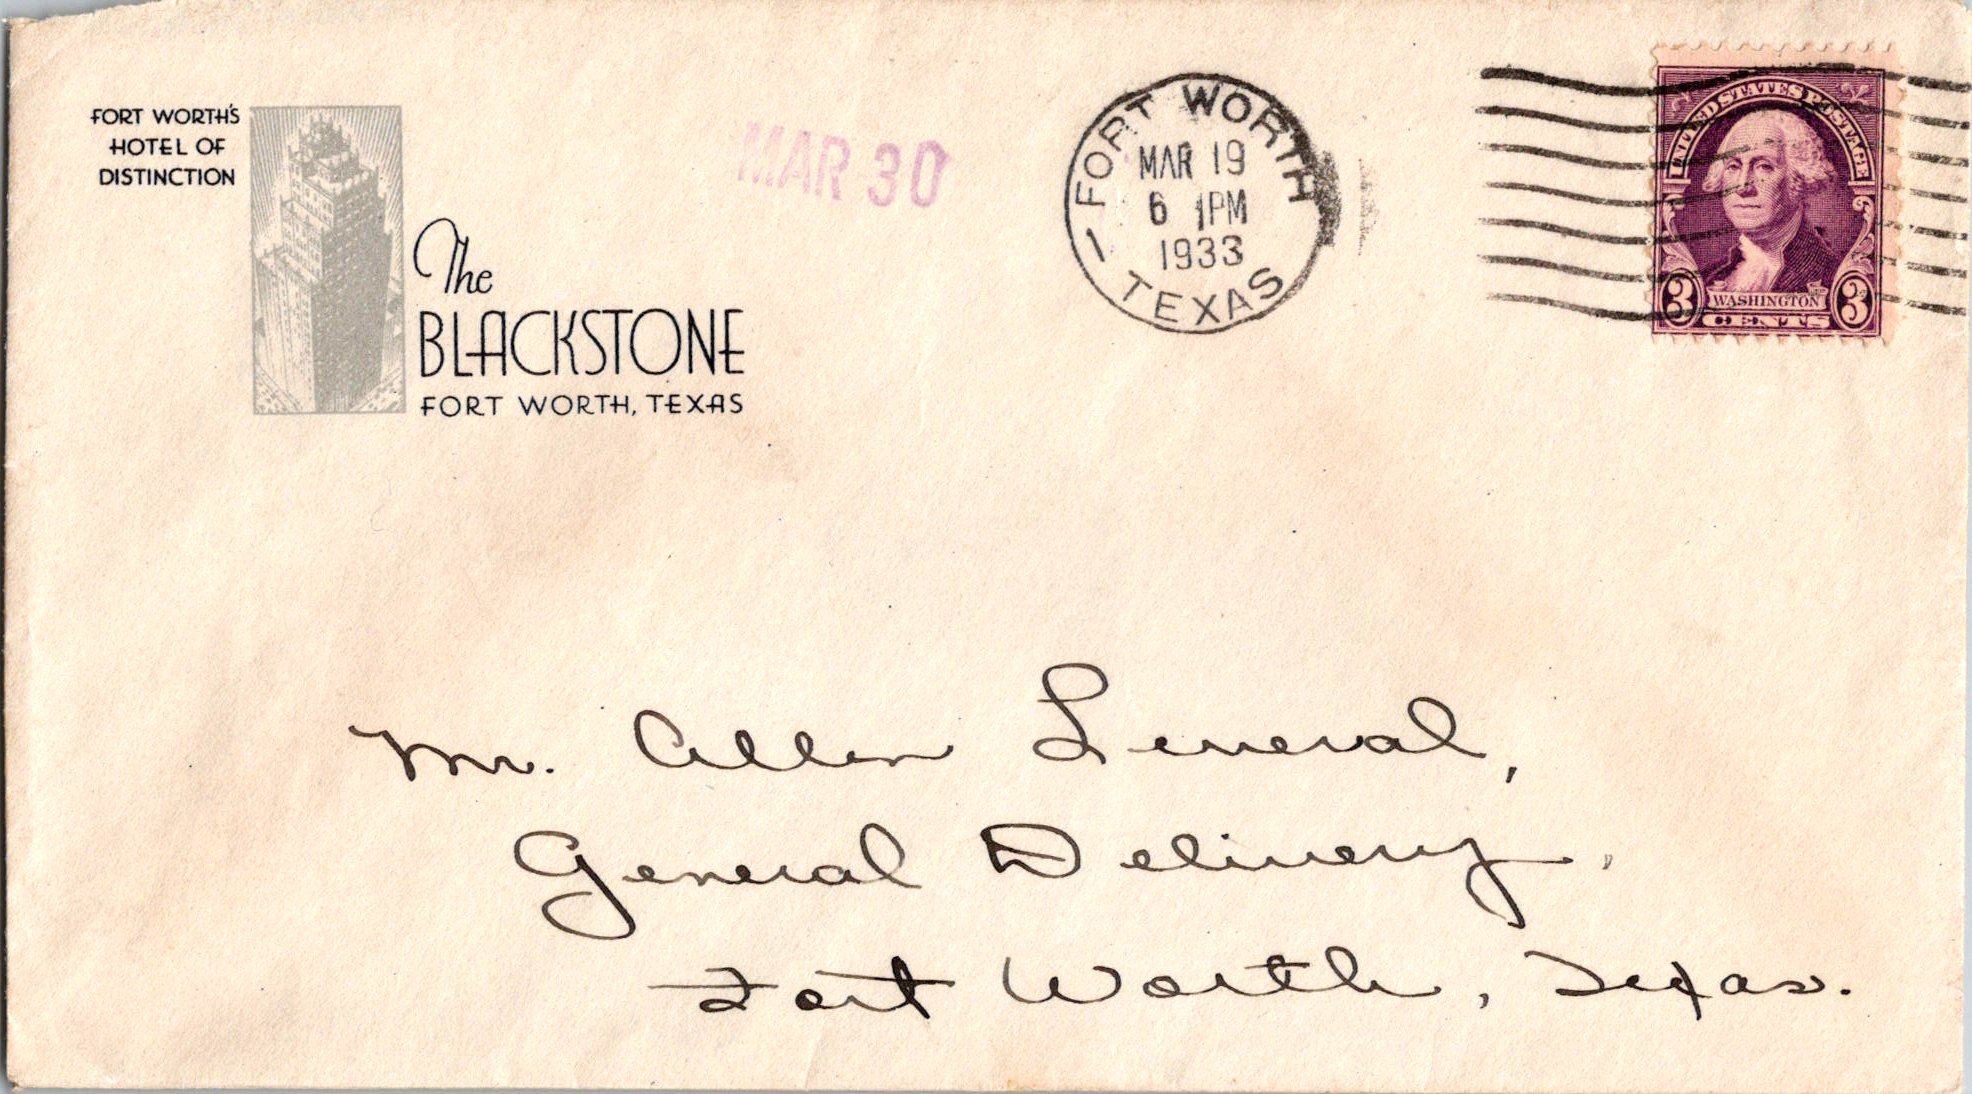 FORT WORTH'S
HOTEL OF
DISTINCTION
The
BLACKSTONE
FORT WORTH, TEXAS
MAR 30
FORT WORTH
MAR 19
6 PM
1933
TEXAS
1
UNITED STATES POSTAGE
3 WASHINGTON 3
CENTS
Mr. Allen Leneval,
General Delivery,
Fort Worth, Texas.